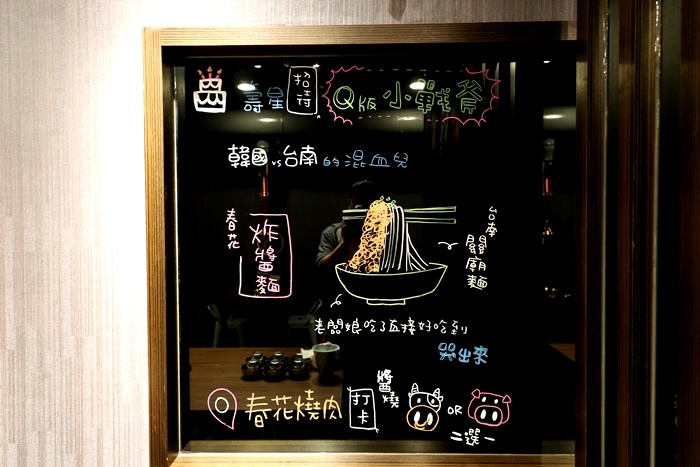 壽星招待Q版小戰斧
韓國vs台南的混血兒
春花
炸醬麵
台南
關廟麵
老闆娘吃了直接好吃到
哭出來
春花燒肉打卡醬燒OR
二選一